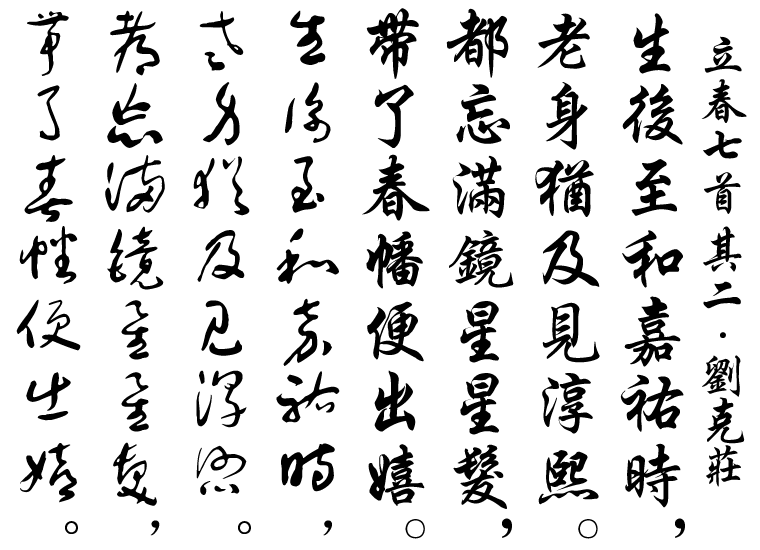 立春七首其二·劉克莊
生後至和嘉祐時，
老身猶及見淳熙。
都忘滿鏡星星髮，
帶了春幡便出嬉。
生後至和嘉祐時，
老身猶及見淳熙。
都忘滿鏡星星髮，
帶了春幡便出嬉。